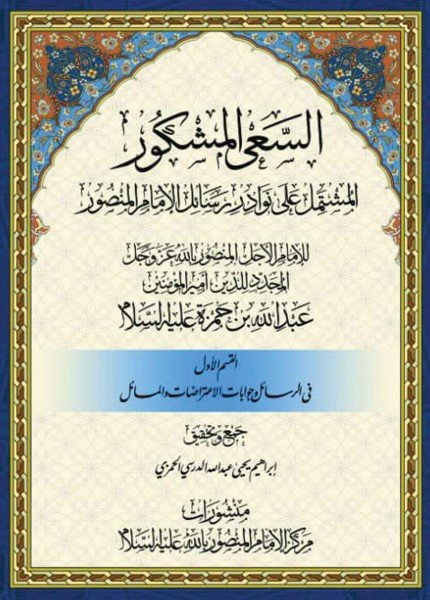 السعي المشكور
المشتمل على نوادر رسائل الإمام المنصور
للإمام الأجل المنصور بالله عز وجل
المجدد للدين أمير المؤمنين
عبد الله بن حمزة عليه السلام
القسم الأول
في الرسائل وجوابات الاعتراضات والمسائل
جمع وتحقيق
إبراهيم يحيى عبدالله الدرسي الحمزي
منشورات
مركز الإمام المنصور بالله عليه السلام